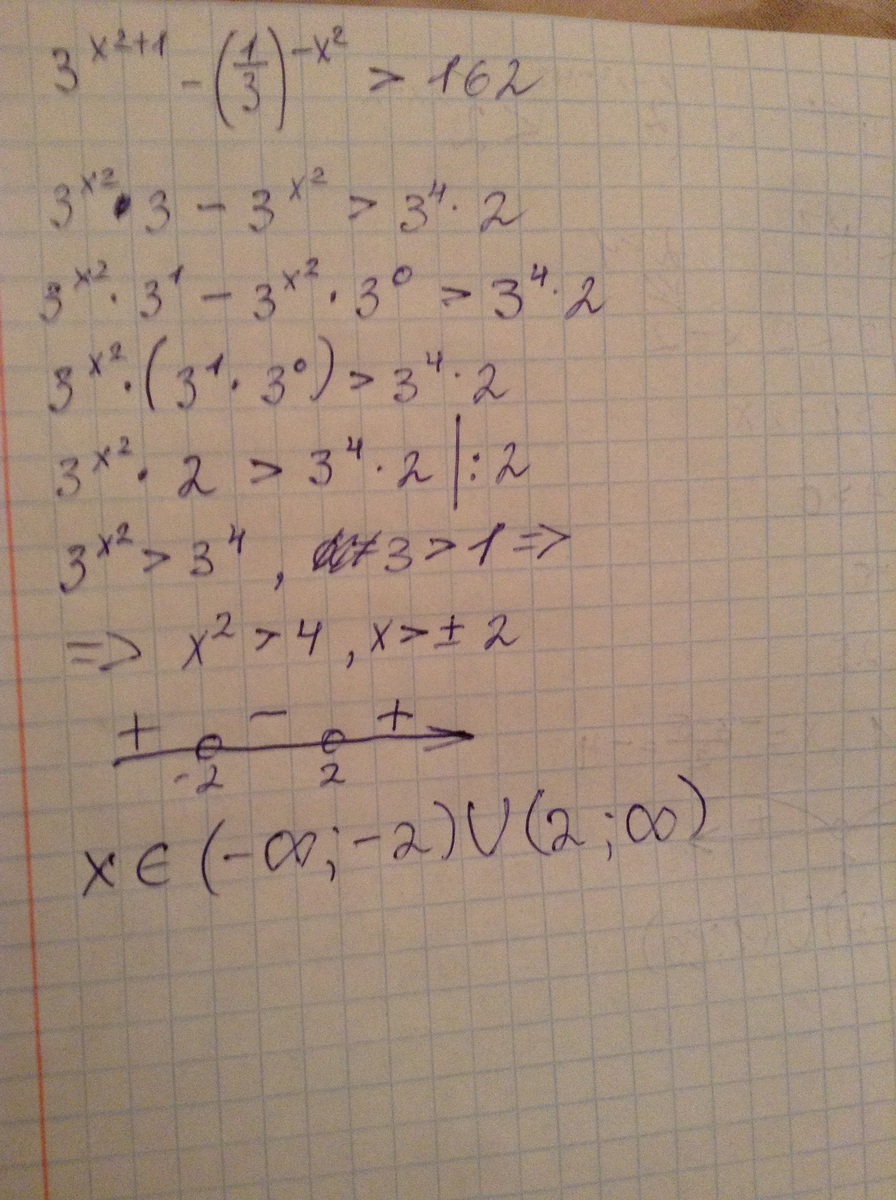 3^(x²+1) - (1/3)^(-x²) > 162
3^(x²) · 3 - 3^(x²) > 3⁴ · 2
3^(x²) · 3¹ - 3^(x²) · 3⁰ > 3⁴ · 2
3^(x²) · (3¹ · 3⁰) > 3⁴ · 2
3^(x²) · 2 > 3⁴ · 2 | : 2
3^(x²) > 3⁴, 3 > 1 =>
=> x² > 4, x > ± 2
+ - +
-2 2
x ∈ (-∞; -2) ∪ (2; ∞)